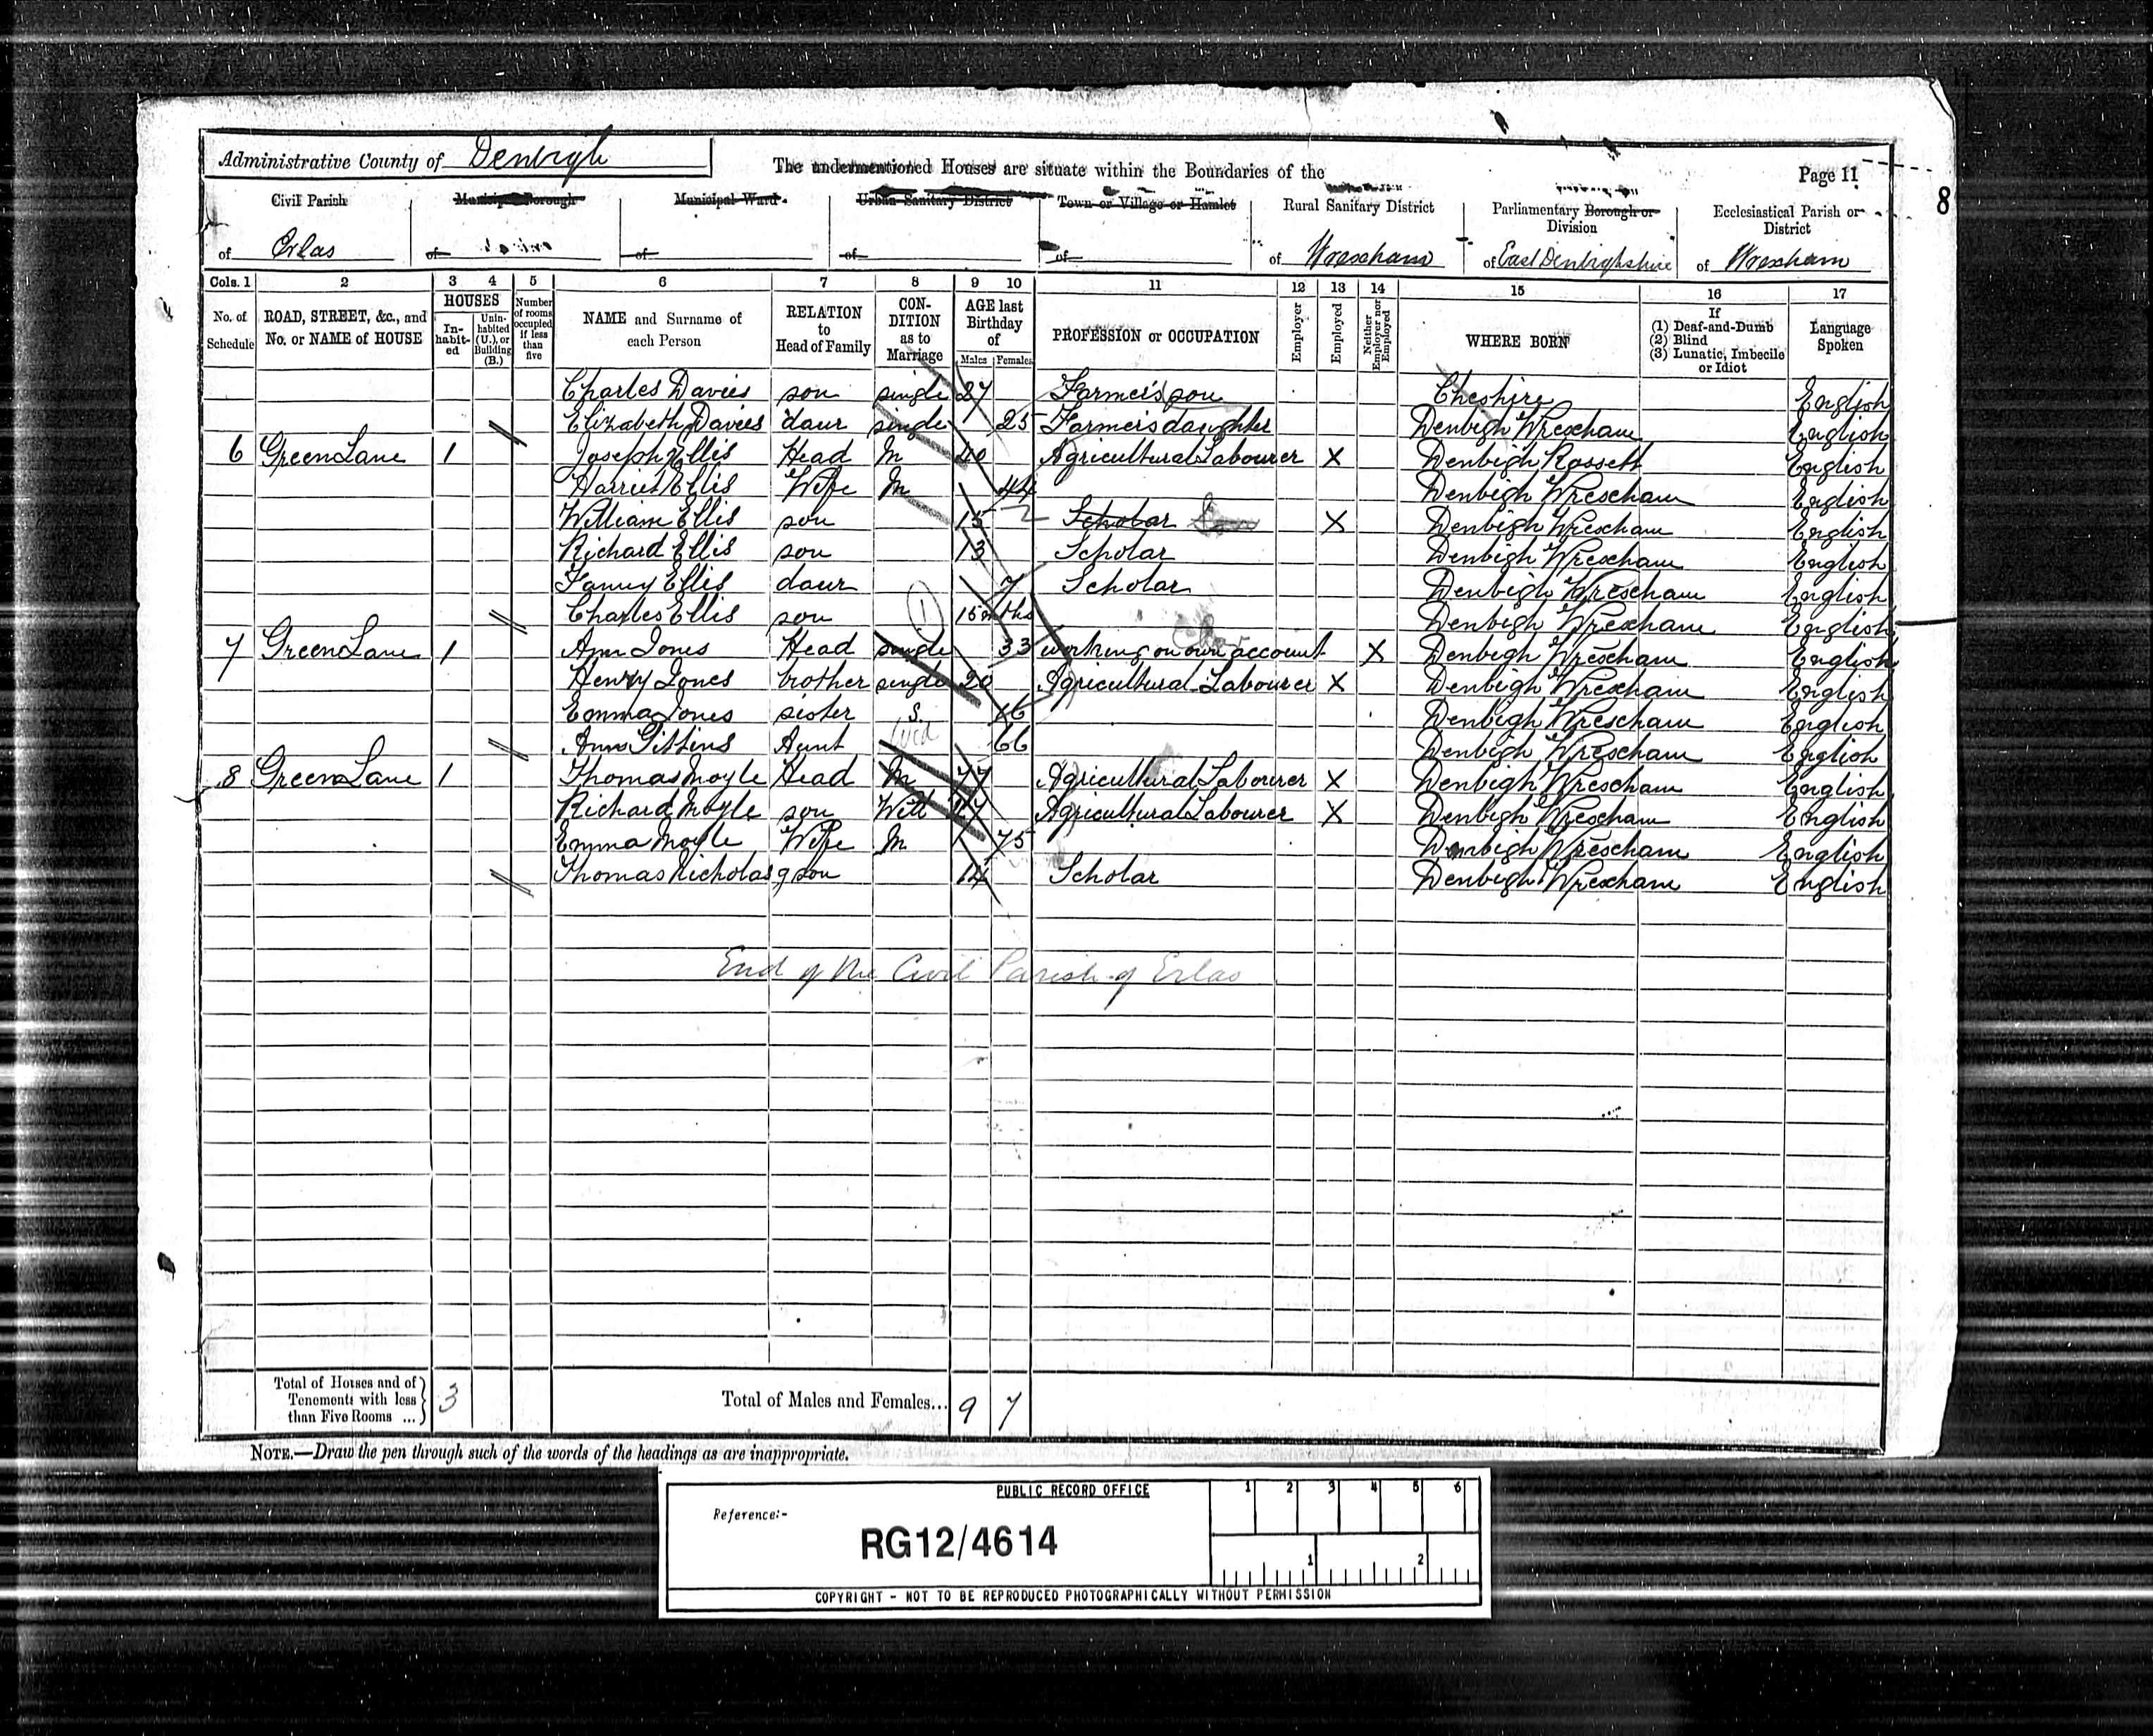 Administrative County of Denbigh
The undermentioned Houses are situate within the Boundaries of the
Page 11
8
Civil Parish of Erlas
Municipal Borough of
Municipal Ward of
Urban Sanitary District of
Town or Village or Hamlet of
Rural Sanitary District of Wrexham
Parliamentary Borough or Division of East Denbighshire
Ecclesiastical Parish or District of Wrexham
Cols. 1 2 3 4 5 6 7 8 9 10 11 12 13 14 15 16 17
No. of Schedule
ROAD, STREET, &c., and No. or NAME of HOUSE
HOUSES
Inhabited
Uninhabited (U.), or Building (B.)
Number of rooms occupied if less than five
NAME and Surname of each Person
RELATION to Head of Family
CONDITION as to Marriage
AGE last Birthday of
Males Females
PROFESSION or OCCUPATION
Employer
Employed
Neither Employer nor Employed
WHERE BORN
If (1) Deaf-and-Dumb (2) Blind (3) Lunatic, Imbecile or Idiot
Language Spoken
Charles Davies son single 27 Farmer's son Cheshire English
Elizabeth Davies daur single 25 Farmer's daughter Denbigh Wrexham English
6 Green Lane 1 Joseph Ellis Head M 40 Agricultural Labourer X Denbigh Rossett English
Harriet Ellis Wife M 44 Denbigh Wrexham English
William Ellis son 15 Scholar X Denbigh Wrexham English
Richard Ellis son 13 Scholar Denbigh Wrexham English
Fanny Ellis daur 7 Scholar Denbigh Wrexham English
Charles Ellis son 1 15 mths Denbigh Wrexham English
7 Green Lane 1 Ann Jones Head single 33 working on own account X Denbigh Wrexham English
Henry Jones brother single 20 Agricultural Labourer X Denbigh Wrexham English
Emma Jones sister S. 16 Denbigh Wrexham English
Ann Gittins Aunt Wid 66 Denbigh Wrexham English
8 Green Lane 1 Thomas Moyle Head M 77 Agricultural Labourer X Denbigh Wrexham English
Richard Moyle son Agricultural Labourer X Denbigh Wrexham English
Emma Moyle Wife M 75 Denbigh Wrexham English
Thomas Nicholas g son 14 Scholar Denbigh Wrexham English
End of the Civil Parish of Erlas
Total of Houses and of Tenements with less than Five Rooms ... 3
Total of Males and Females... 9 7
NOTE.—Draw the pen through such of the words of the headings as are inappropriate.
PUBLIC RECORD OFFICE
1 2 3 4 5 6
Reference:-
RG12/4614
1 2
COPYRIGHT - NOT TO BE REPRODUCED PHOTOGRAPHICALLY WITHOUT PERMISSION